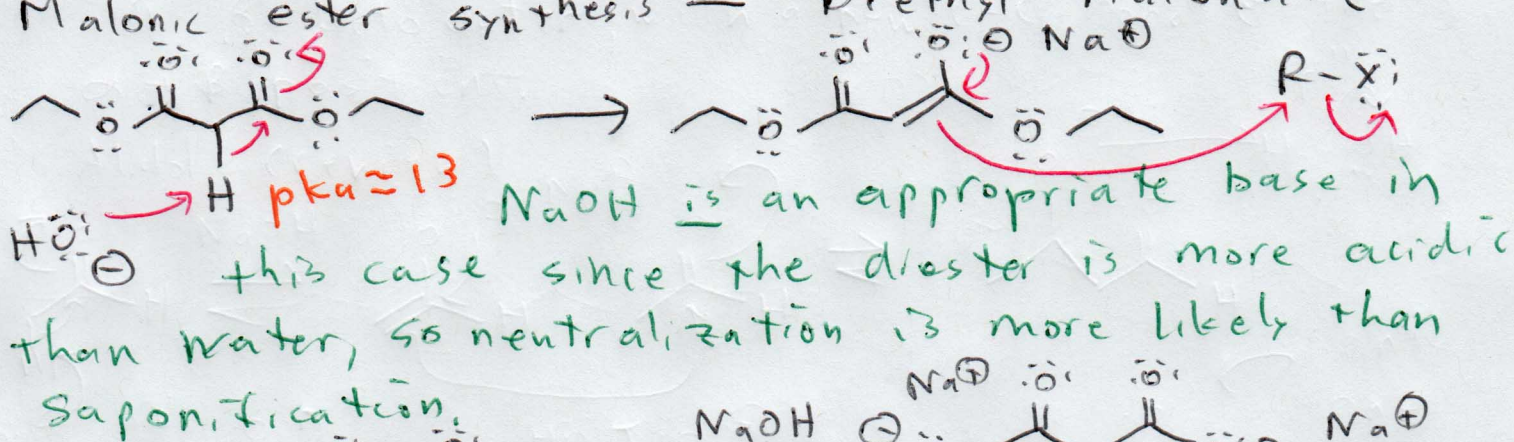 Malonic ester synthesis —
Na⊕
R-X
H pka≈13
HO ⊖
NaOH is an appropriate base in
this case since the diester is more acidic
than water, so neutralization is more likely than
saponification.
NaOH Na⊕ Na⊕